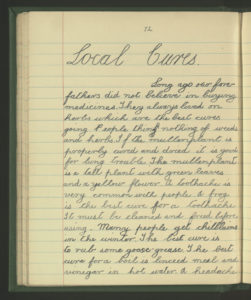 72
Local Cures.
Long ago our fore-
fathers did not believe in buying
medicines. They always lived on
herbs which are the best cures
going. People think nothing of weeds
and herbs. If the mullen plant is
properly cured and dried it is good
for lung trouble. The mullen plant
is a tall plant with green leaves
and a yellow flower. A toothache is
very common with people. A frog
is the best cure for a toothache.
It must be cleaned and fried before
using. Many people get chilblains
in the winter. The best cure is
to rub some goose-grease. The best
cure for a boil is linseed meal and
vinegar in hot water. A headache